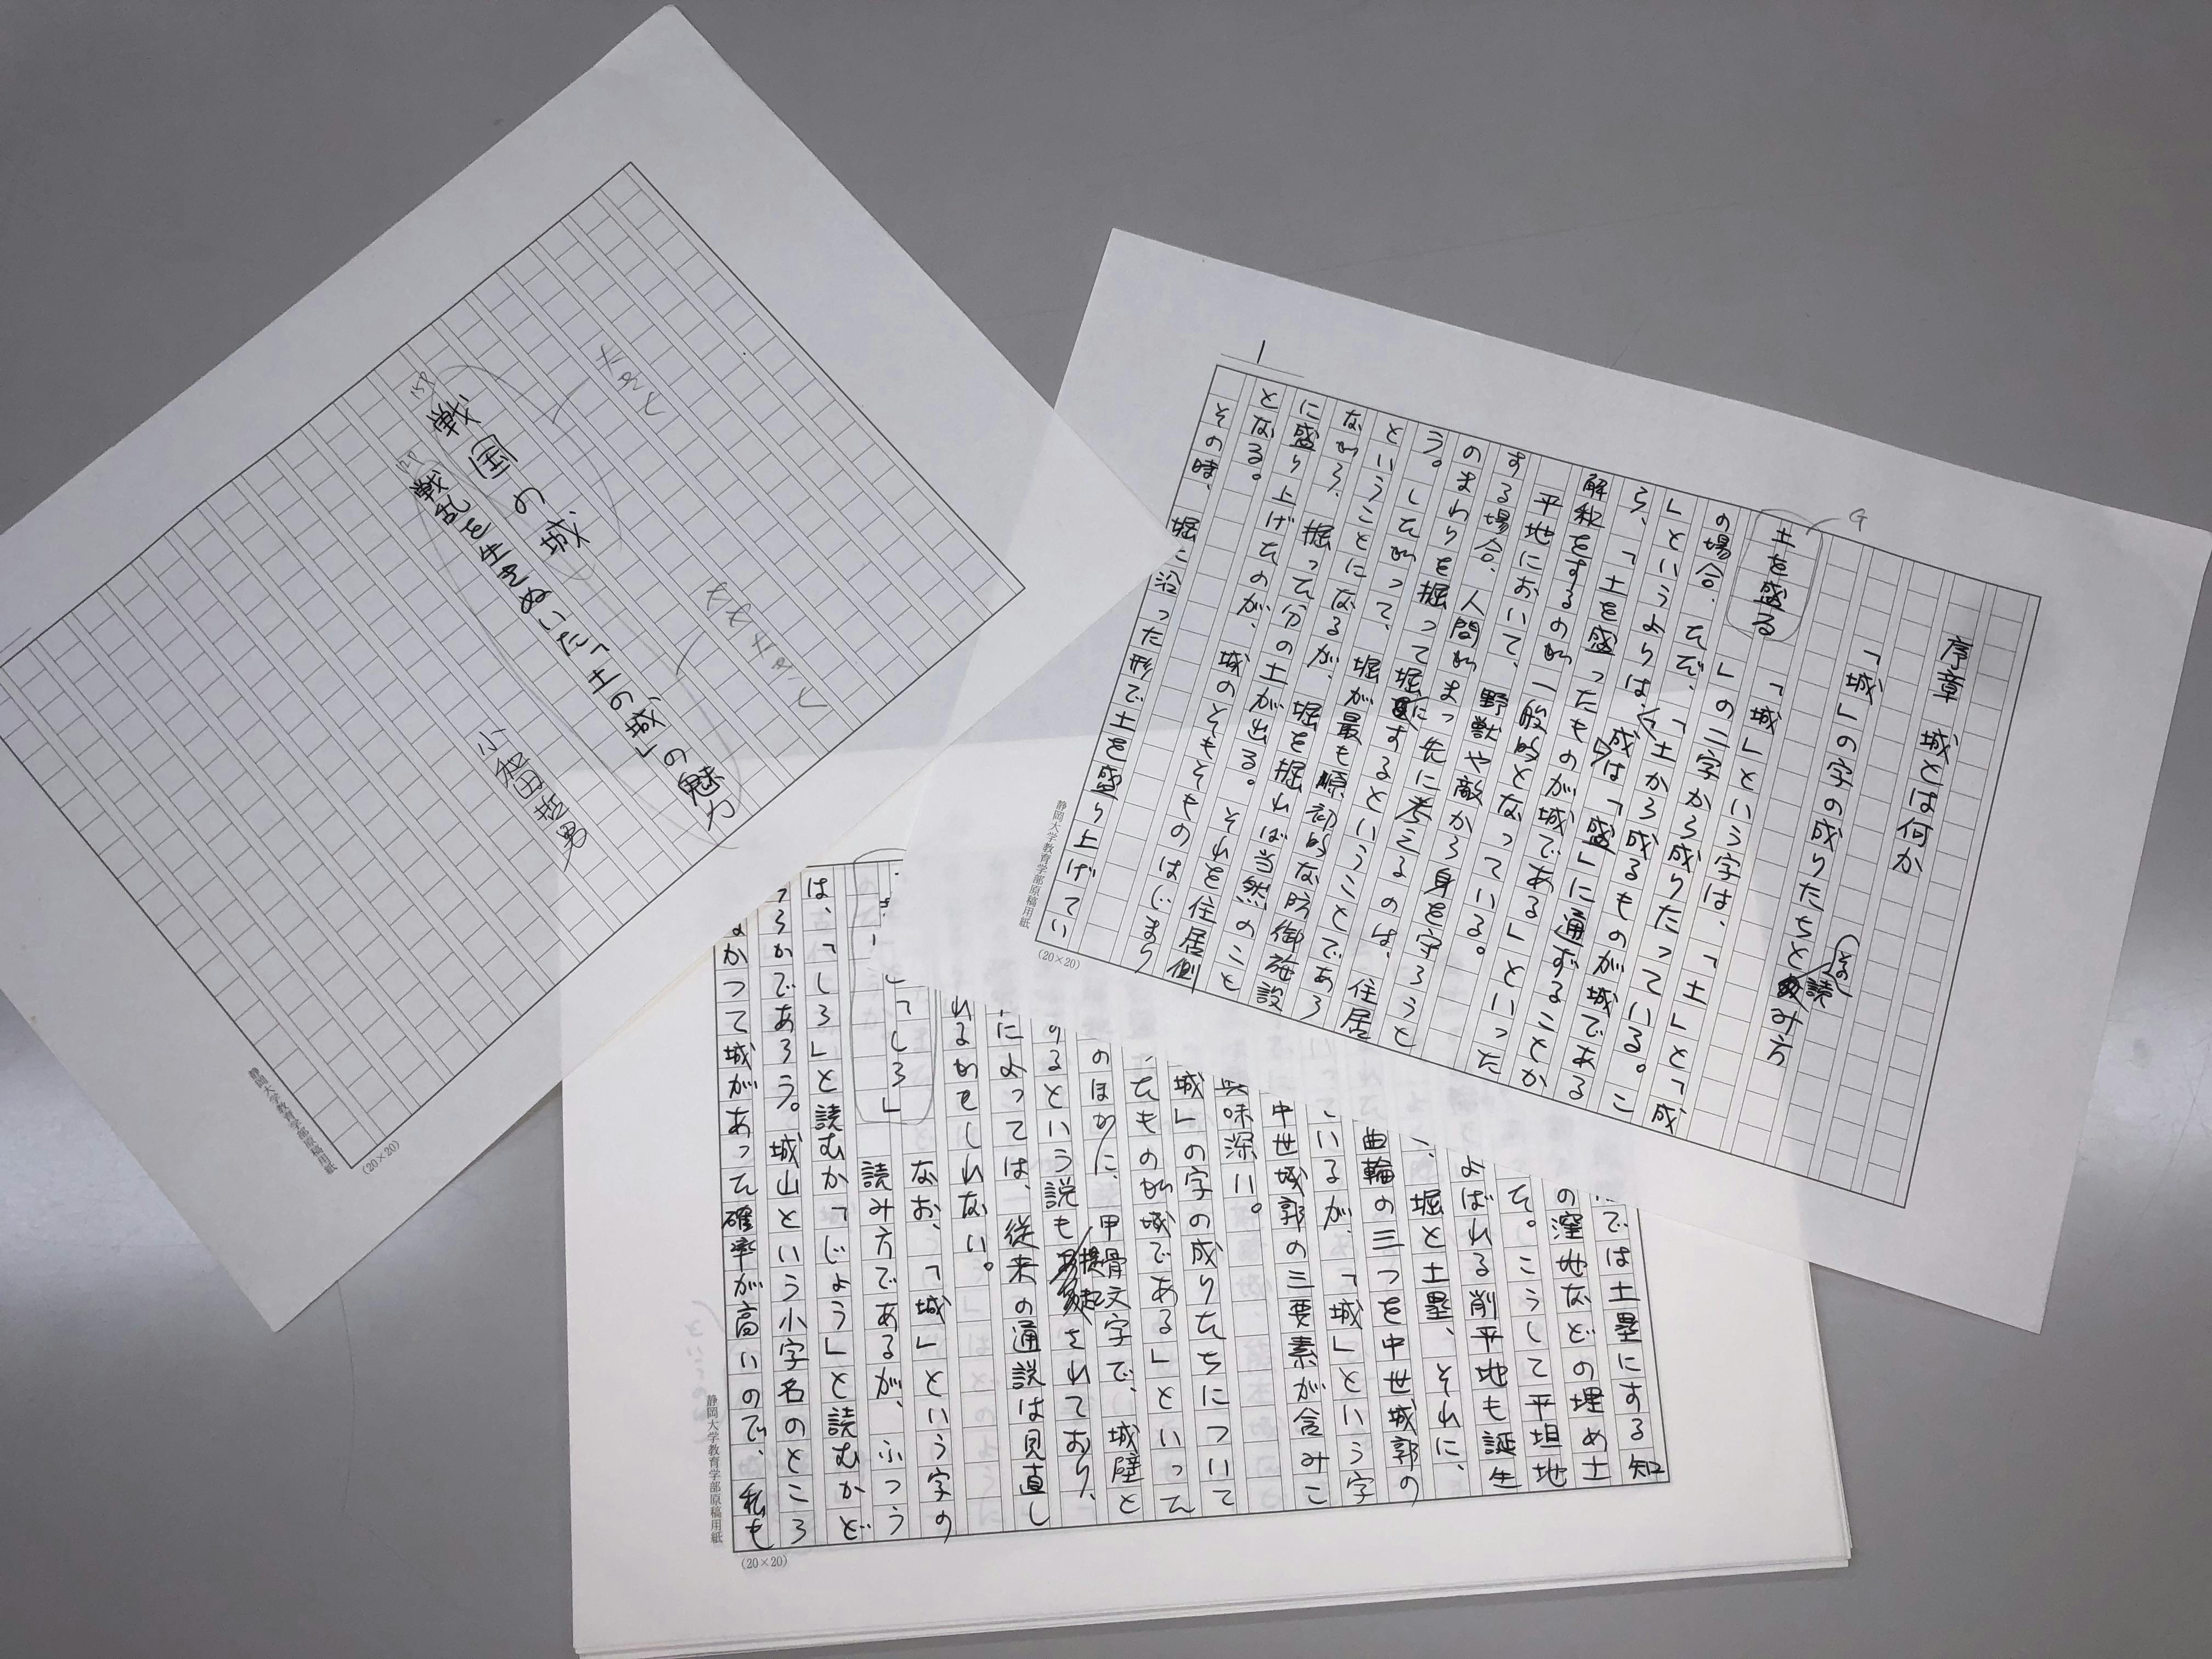 戦国の城
戦乱を生きぬいた「土の城」の魅力
小和田哲男
静岡大学教育学部原稿用紙
(20×20)
1
序章 城とは何か
「城」の字の成りたちとその読み方
土を盛る
「城」という字は、「土」と「成
」の二字から成りたっている。こ
の場合、ただ、「土から成るものが城である
」というよりは、成は「盛」に通ずることか
ら、「土を盛ったものが城である」といった
解釈をするのが一般的となっている。
平地において、野獣や敵から身を守ろうと
する場合、人間がまっ先に考えるのは、住居
のまわりを掘って堀にするということであろ
う。したがって、堀が最も原初的な防御施設
ということになるが、堀を掘れば当然のこと
ながら、掘って分の土が出る。それを住居側
に盛り上げたのが、城のそもそものはじまり
となる。
その時、堀に沿った形で土を盛り上げてい
静岡大学教育学部原稿用紙
(20×20)
では土塁にする知
の窪地などの埋め土
た。こうして平坦地
よばれる削平地も誕生
、堀と土塁、それに、
曲輪の三つを中世城郭の
いるが、「城」という字
中世城郭の三要素が含みこ
興味深い。
城」の字の成りたちについて
たものが城である」といって
のほかに、甲骨文字で、城壁と
のるという説も提起されており、
によっては、従来の通説は見直し
れるかもしれない。
なお、「城」という字の
「しろ」
読み方であるが、ふつう
は、「しろ」と読むか「じょう」と読むかど
ちらかであろう。城山という小字名のところ
はかつて城があった確率が高いので、私も
静岡大学教育学部原稿用紙
(20×20)